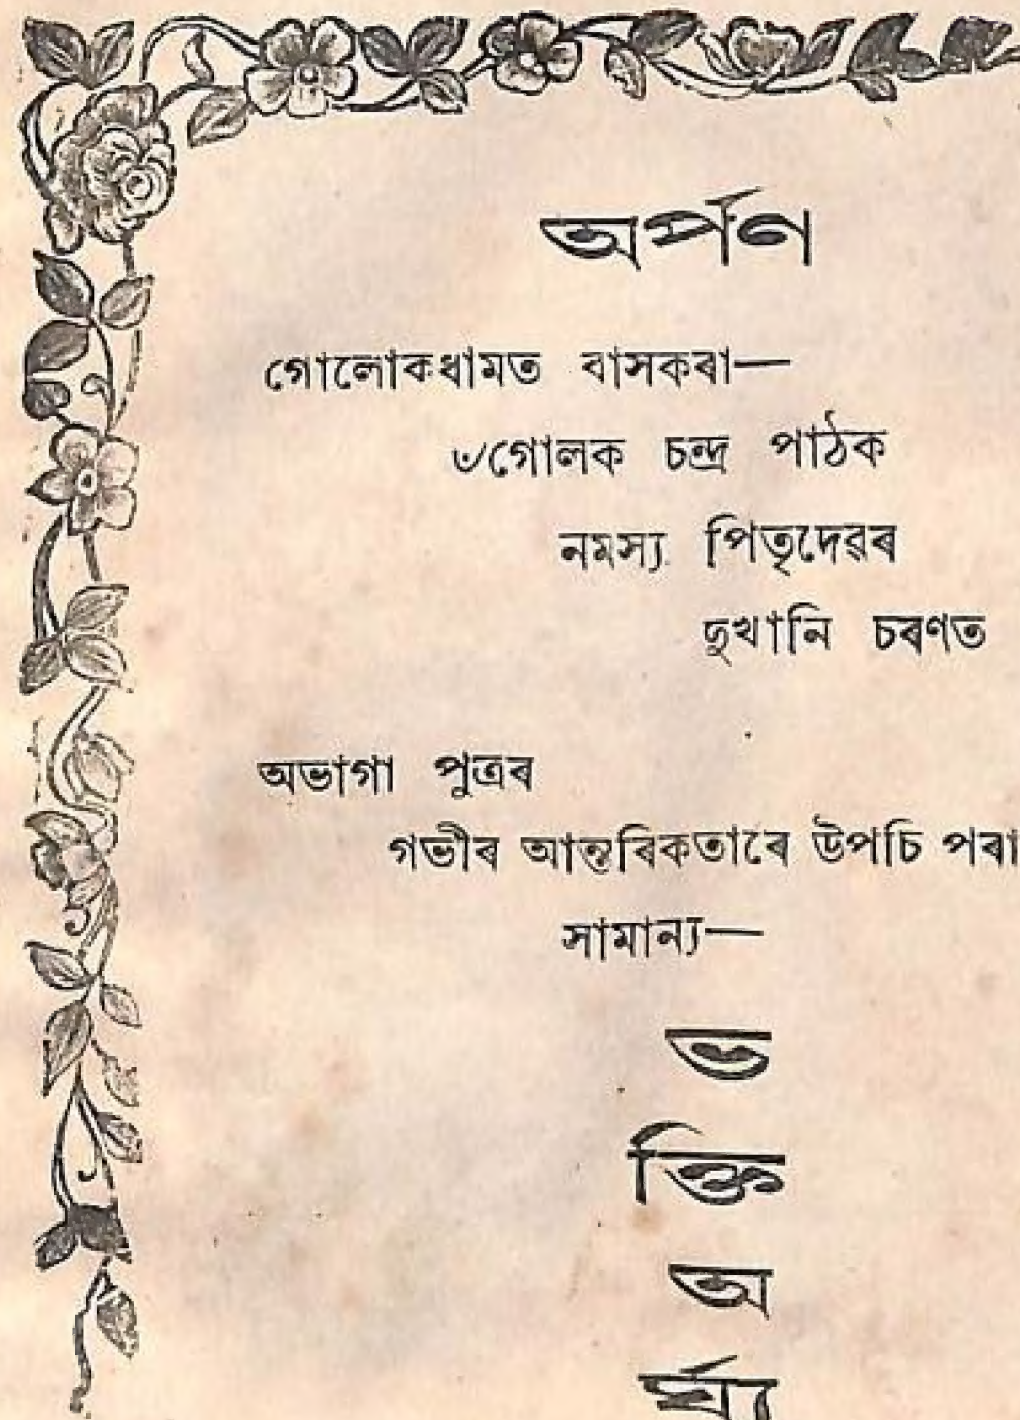 অৰ্পণ
গোলোকধামত বাসকৰা—
৺গোলক চন্দ্ৰ পাঠক
নমস্য পিতৃদেৱৰ
দুখানি চৰণত
অভাগা পুত্ৰৰ
গভীৰ আন্তৰিকতাৰে উপচি পৰা
সামান্য—
ভ
ক্তি
অ
ৰ্ঘ্য